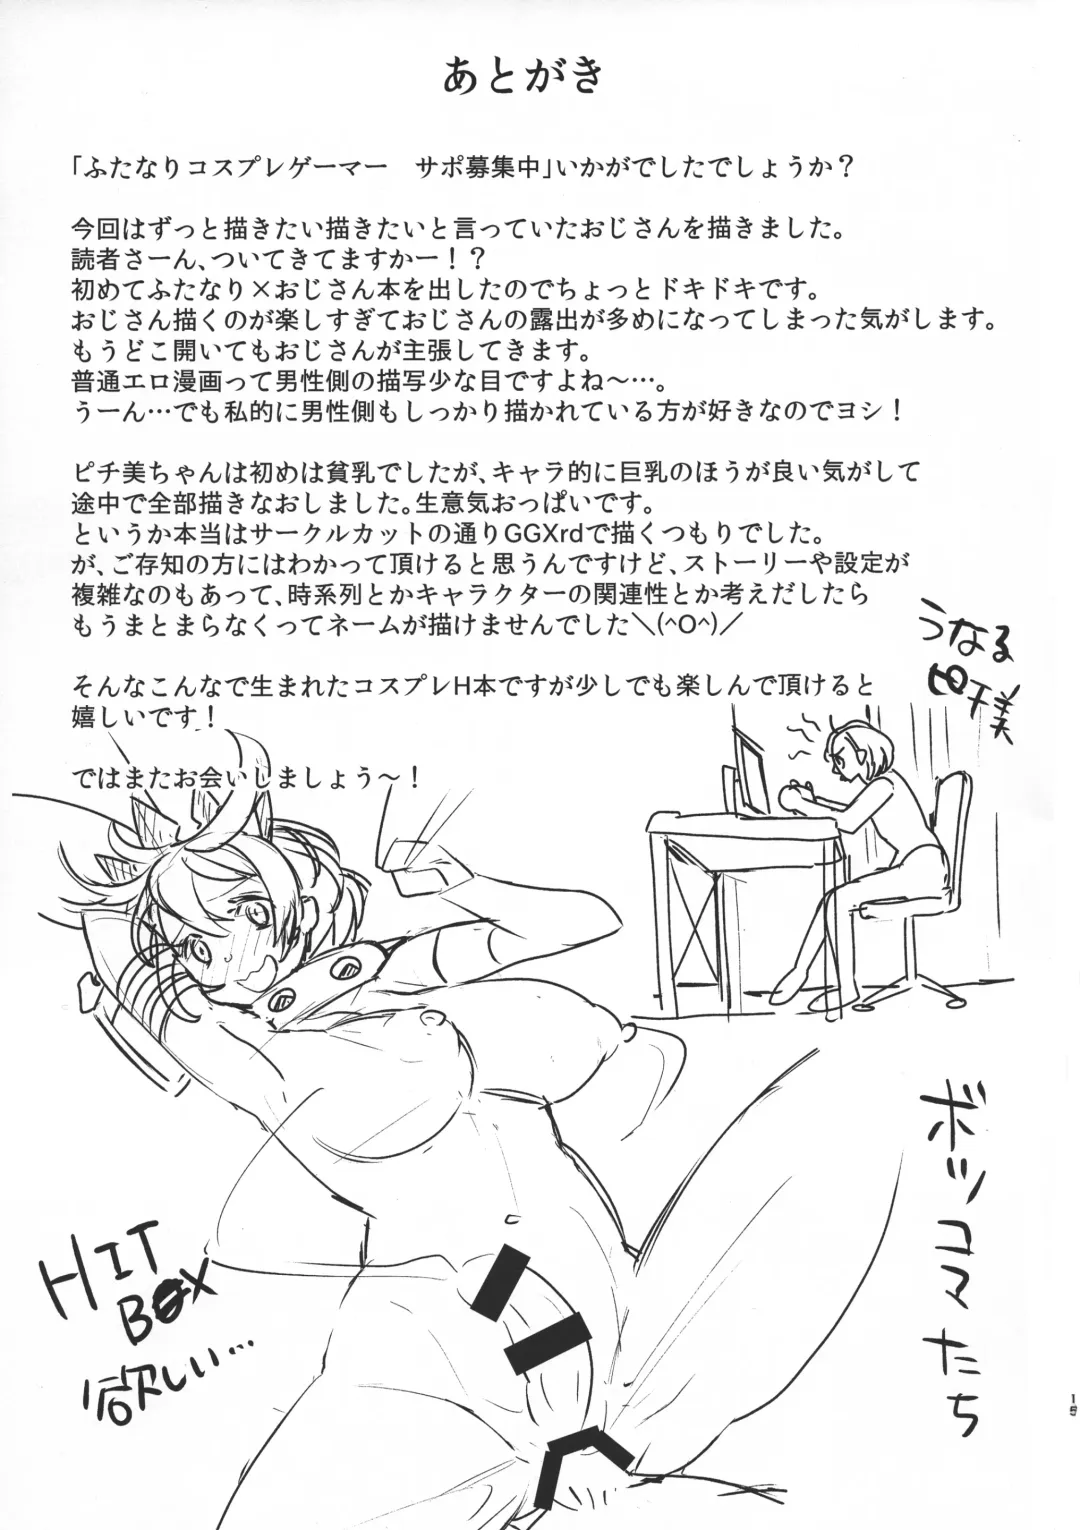 あとがき
「ふたなりコスプレゲーマー　サポ募集中」いかがでしたでしょうか？
今回はずっと描きたい描きたいと言っていたおじさんを描きました。
読者さーん、ついてきてますかー！？
初めてふたなり×おじさん本を出したのでちょっとドキドキです。
おじさん描くのが楽しすぎておじさんの露出が多めになってしまった気がします。
もうどこ開いてもおじさんが主張してきます。
普通エロ漫画って男性側の描写少な目ですよね～…。
うーん…でも私的に男性側もしっかり描かれている方が好きなのでヨシ！
ピチ美ちゃんは初めは貧乳でしたが、キャラ的に巨乳のほうが良い気がして
途中で全部描きなおしました。生意気おっぱいです。
というか本当はサークルカットの通りGGXrdで描くつもりでした。
が、ご存知の方にはわかって頂けると思うんですけど、ストーリーや設定が
複雑なのもあって、時系列とかキャラクターの関連性とか考えだしたら
もうまとまらなくってネームが描けませんでした＼(^O^)／
そんなこんなで生まれたコスプレH本ですが少しでも楽しんで頂けると
嬉しいです！
ではまたお会いしましょう～！
うなる
ピチ美
ボツコマたち
HIT
BOX
欲しい…
19